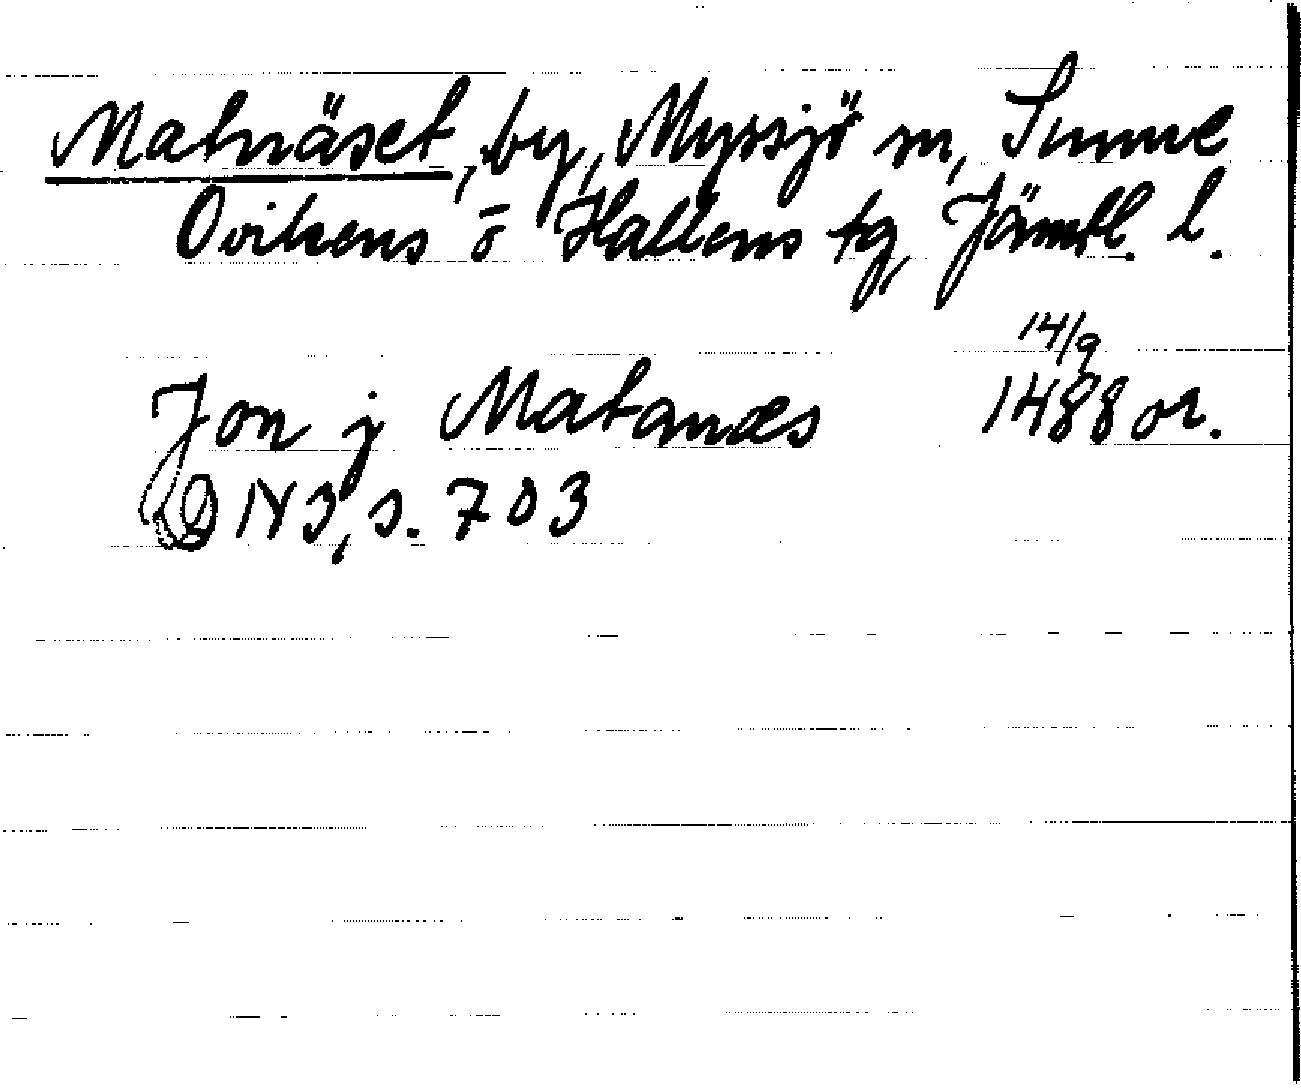 Matnäset, by, Myssjö sn, Sunne
Ovikens o Hallens tg, Jämtl. l.
14/9
Jon j Matanæs 1488 or.
DN 3, s. 703